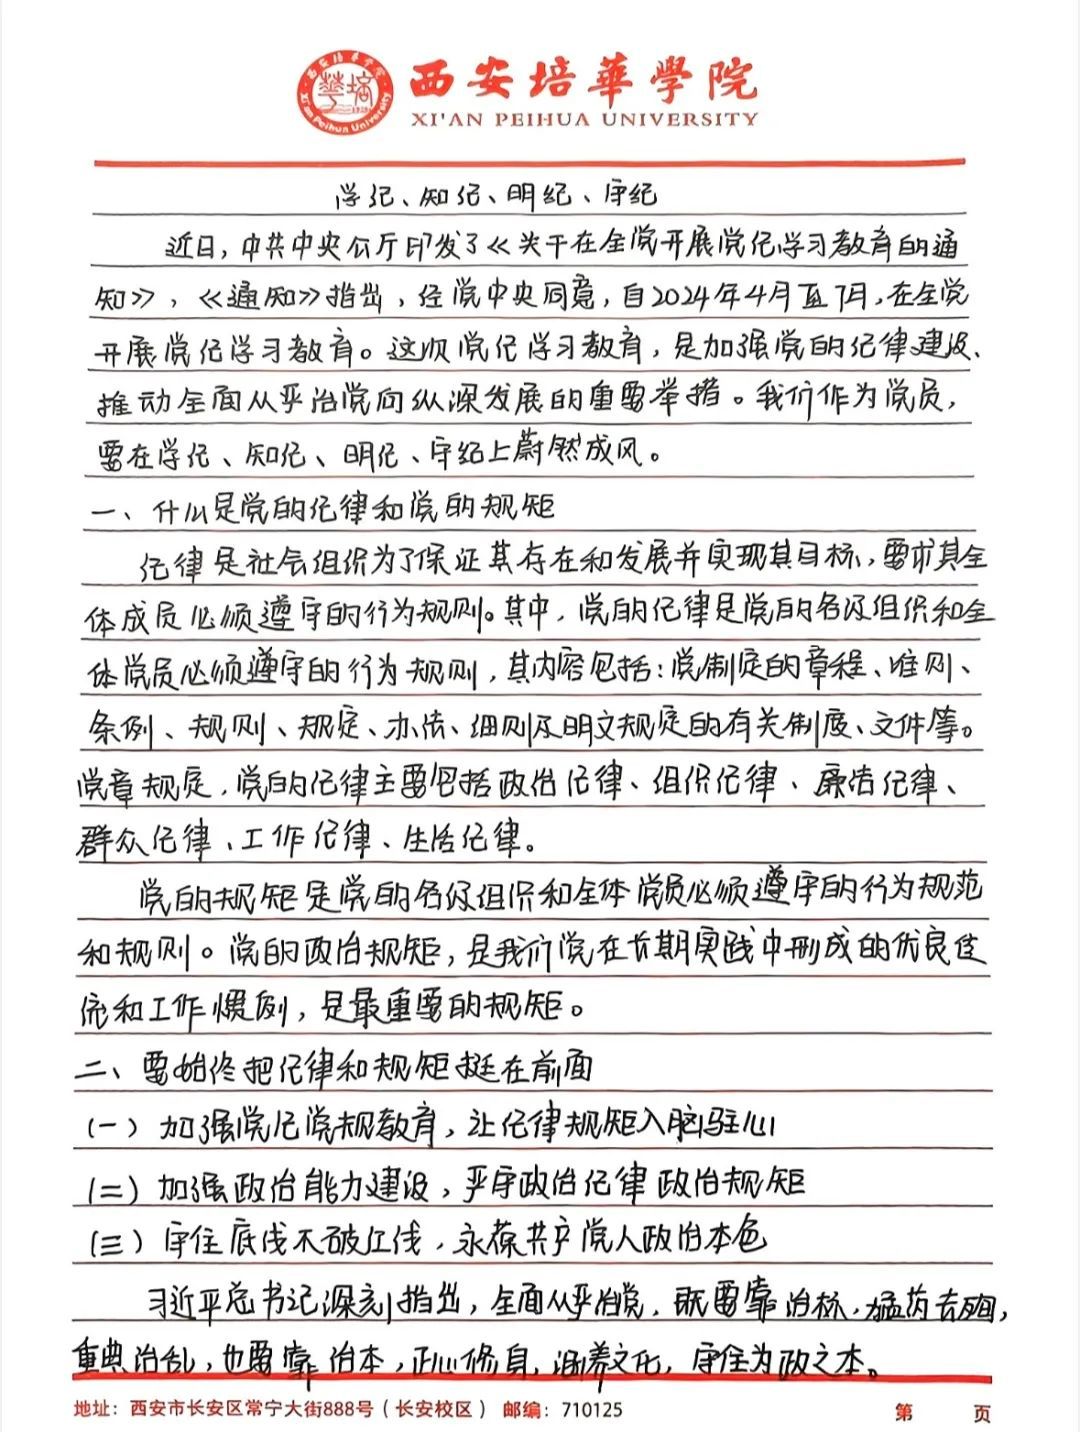 西安培華學院
XI'AN PEIHUA UNIVERSITY
学纪、知纪、明纪、守纪
近日，中共中央公厅印发了《关于在全党开展党纪学习教育的通
知》，《通知》指出，经党中央同意，自2024年4月至7月，在全党
开展党纪学习教育。这次党纪学习教育，是加强党的纪律建设、
推动全面从严治党向纵深发展的重要举措。我们作为党员，
要在学纪、知纪、明纪、守纪上蔚然成风。
一、什么是党的纪律和党的规矩
纪律是社会组织为了保证其存在和发展并实现其目标，要求其全
体成员必须遵守的行为规则。其中，党的纪律是党的各级组织和全
体党员必须遵守的行为规则，其内容包括：党制定的章程、准则、
条例、规则、规定、办法、细则及明文规定的有关制度、文件等。
党章规定，党的纪律主要包括政治纪律、组织纪律、廉洁纪律、
群众纪律、工作纪律、生活纪律。
党的规矩是党的各级组织和全体党员必须遵守的行为规范
和规则。党的政治规矩，是我们党在长期实践中形成的优良传
统和工作惯例，是最重要的规矩。
二、要始终把纪律和规矩挺在前面
（一）加强党纪党规教育，让纪律规矩入脑驻心
（二）加强政治能力建设，严守政治纪律政治规矩
（三）守住底线不破红线，永葆共产党人政治本色
习近平总书记深刻指出，全面从严治党，既要靠治标，猛药去疴，
重典治乱，也要靠治本，正心修身，涵养文化，守住为政之本。
地址：西安市长安区常宁大街888号（长安校区） 邮编：710125 第 页